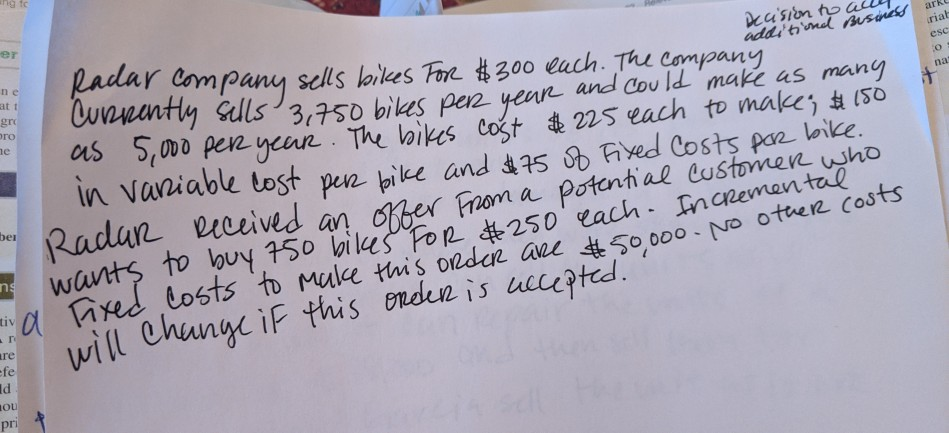 Decision to
additional Business
Radar company sells bikes For $300 each. The company
Currently sells 3,750 bikes per year and could make as many
as 5,000 per year. The bikes cost $225 each to make; $150
in variable cost per bike and $75 of Fixed Costs per bike.
Radar received an offer From a potential customer who
wants to buy 750 bikes For $250 each. Incremental
Fixed Costs to make this order are $50,000. No other costs
will change if this order is accepted.
a